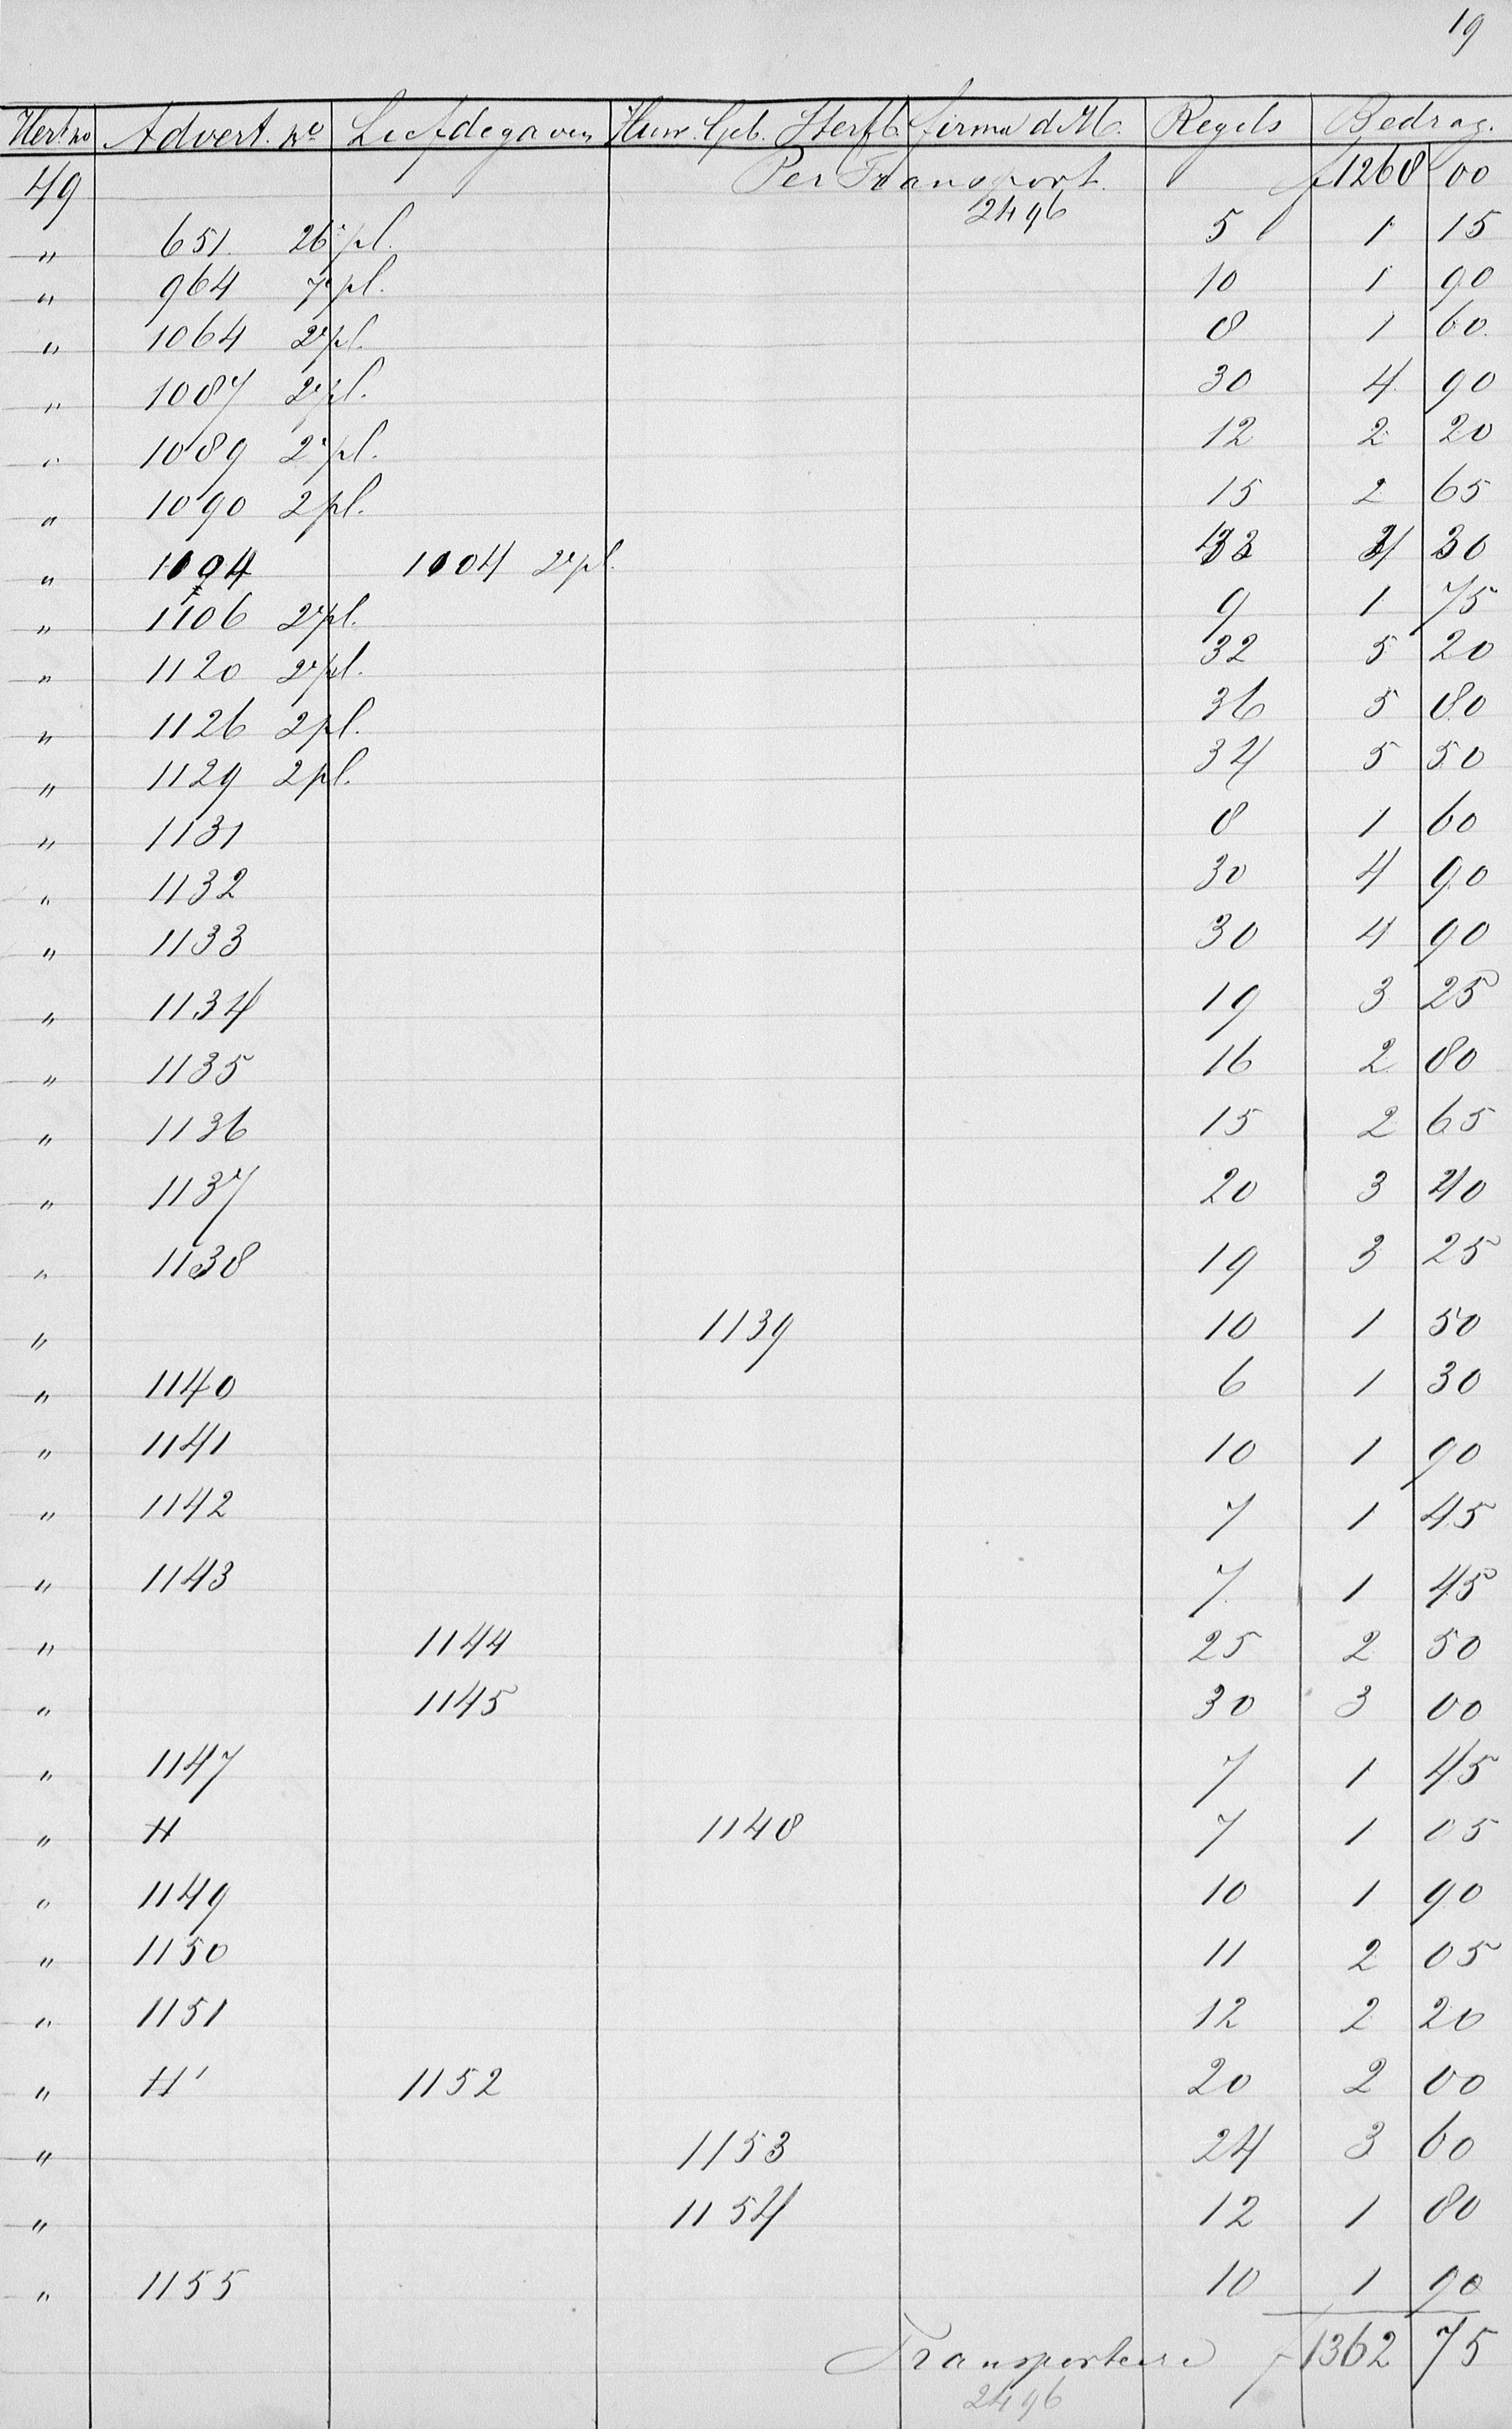 19
Hert. no Advert. no Liefdegaven Huw. Geb. Sterft. firma d. H. Regels Bedrag.
49 Per Transport. f 1268 00
2496
" 651 26e pl. 5 1 15
" 964 7e pl. 10 1 90
" 1064 2e pl. 8 1 60
" 1087 2e pl. 30 4 90
" 1089 2e pl. 12 2 20
" 1090 2 pl. 15 2 65
" 1094 1104 2e pl. 33 3 30
" 1106 2e pl. 9 1 75
" 1120 2e pl. 32 5 20
" 1126 2 pl. 36 5 80
" 1129 2 pl. 34 5 50
" 1131 8 1 60
" 1132 30 4 90
" 1133 30 4 90
" 1134 19 3 25
" 1135 16 2 80
" 1136 15 2 65
" 1137 20 3 40
" 1138 19 3 25
" 1139 10 1 50
" 1140 6 1 30
" 1141 10 1 90
" 1142 7 1 45
" 1143 7 1 45
" 1144 25 2 50
" 1145 30 3 00
" 1147 7 1 45
" 1148 7 1 05
" 1149 10 1 90
" 1150 11 2 05
" 1151 12 2 20
" 1152 20 2 00
" 1153 24 3 60
" 1154 12 1 80
" 1155 10 1 90
Transporteere f 1362 75
2496